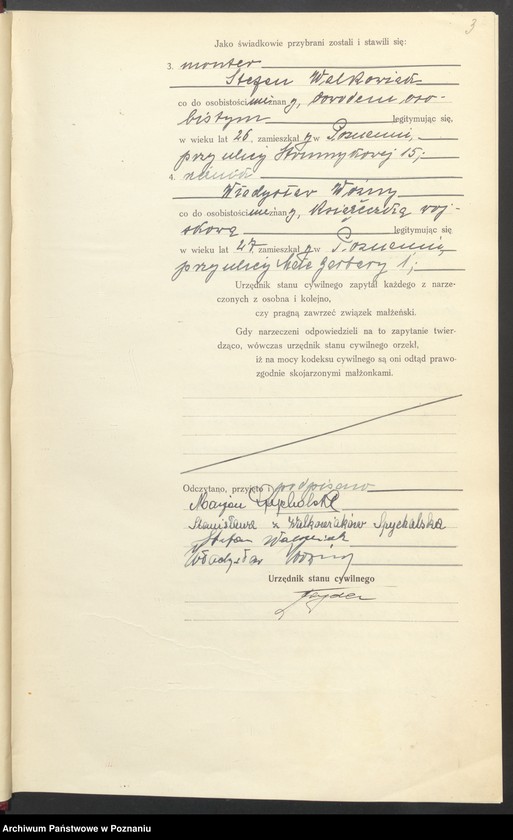 3
Jako świadkowie przybrani zostali i stawili się:
3. monter
Stefan Walkowiak
co do osobistości znany, dowodem oso-
bistym legitymując się,
w wieku lat 26, zamieszkały w Poznaniu,
przy ulicy Strumykowej 15;
4.
Władysław Woźny
co do osobistości znany, książeczką woj-
skową legitymując się
w wieku lat 27 zamieszkały w Poznaniu,
przy ulicy Małe Garbary 1;
Urzędnik stanu cywilnego zapytał każdego z narze-
czonych z osobna i kolejno,
czy pragną zawrzeć związek małżeński.
Gdy narzeczeni odpowiedzieli na to zapytanie twier-
dząco, wówczas urzędnik stanu cywilnego orzekł,
iż na mocy kodeksu cywilnego są oni odtąd prawo-
zgodnie skojarzonymi małżonkami.
Odczytano, przyjęto i podpisano
Marjan Spychalski
Stanisława z Walkowiaków Spychalska
Stefan Walkowiak
Władysław Woźny
Urzędnik stanu cywilnego
Archiwum Państwowe w Poznaniu